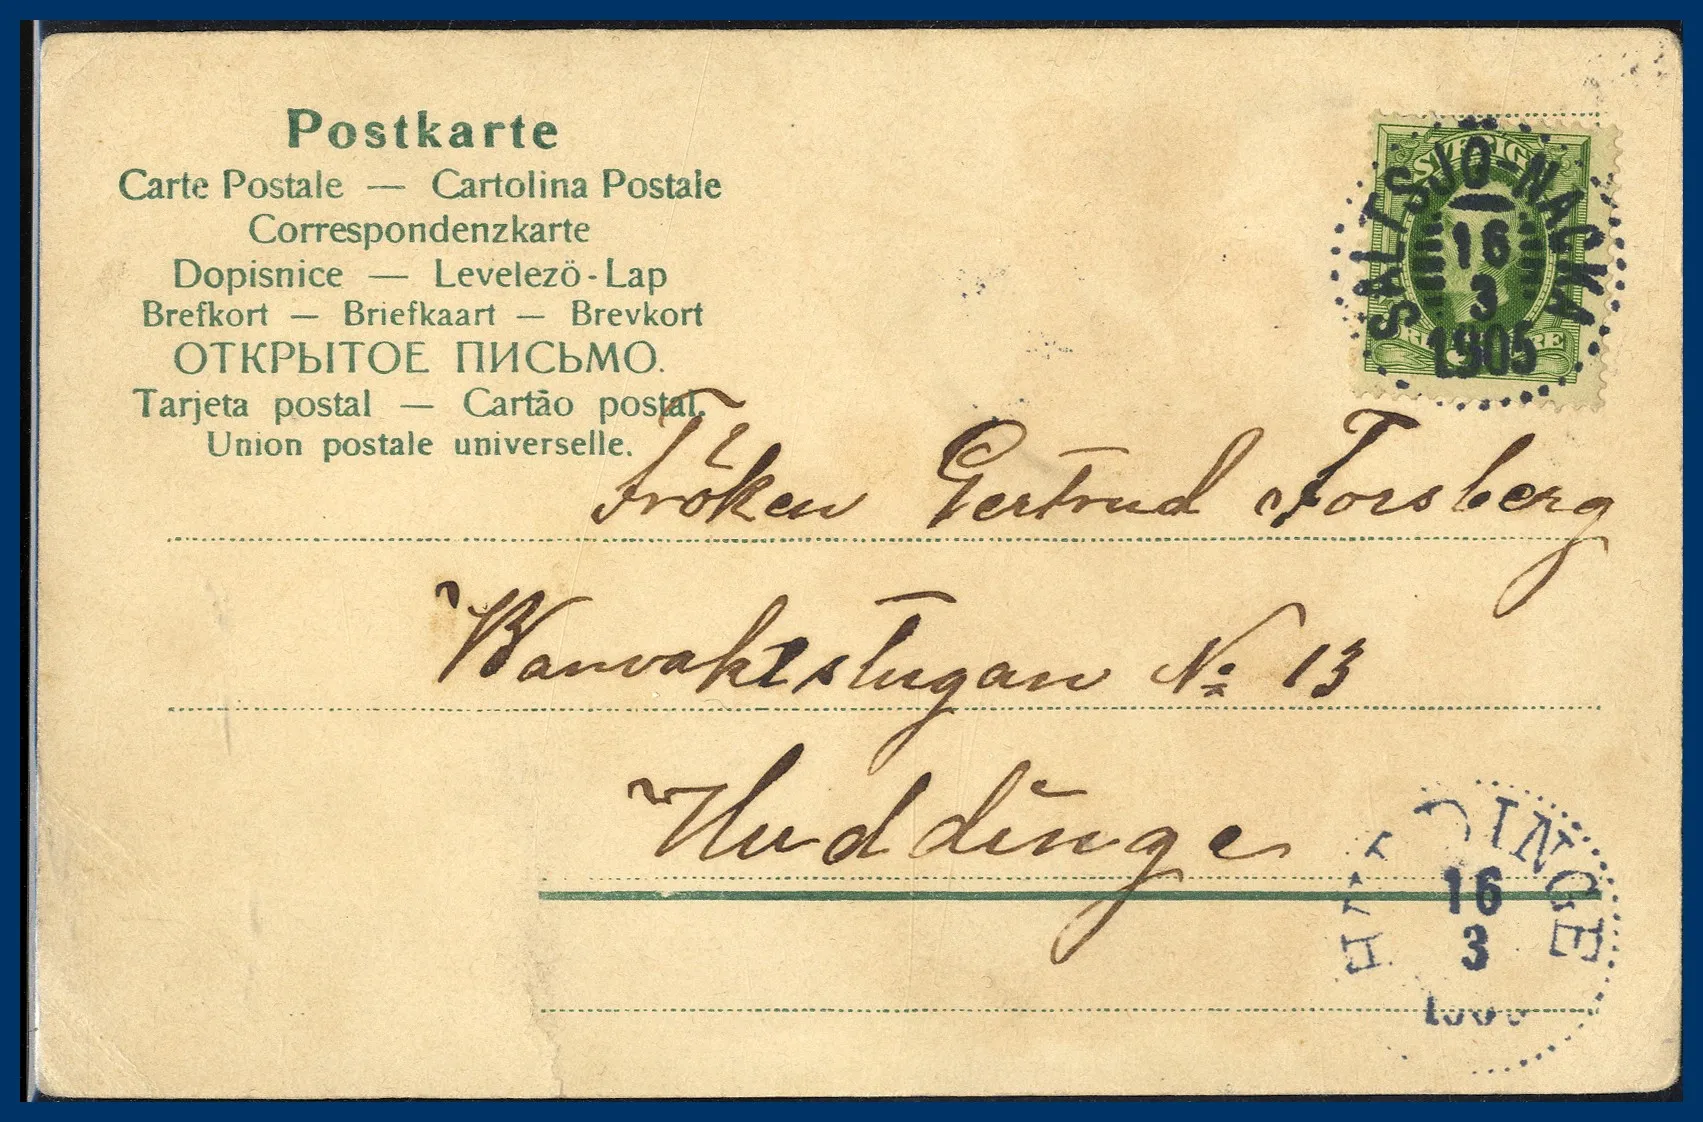 Postkarte
Carte Postale — Cartolina Postale
Correspondenzkarte
Dopisnice — Levelezö-Lap
Brefkort — Briefkaart — Brevkort
ОТКРЫТОЕ ПИСЬМО.
Tarjeta postal — Cartão postal.
Union postale universelle.
SVERIGE
SALTSJÖ-NACKA
16
3
1905
Fröken Gertrud Forsberg
Banvaktstugan No 13
Huddinge
HUDDINGE
16
3